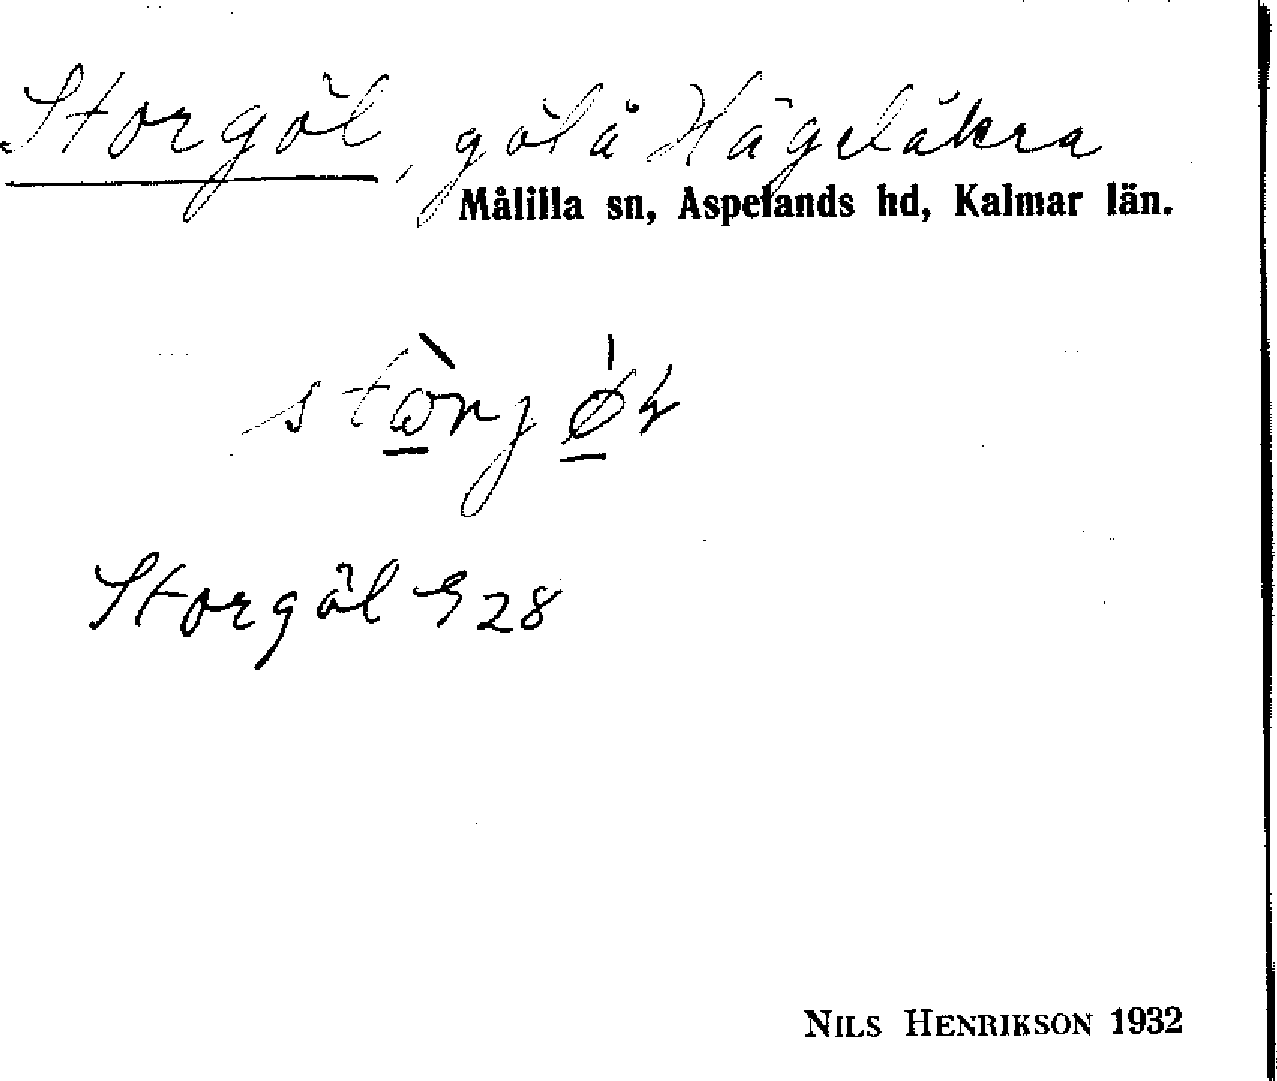 Storgöl, göl å Hägelåkra
Målilla sn, Aspelands hd, Kalmar län.
Storgöl G 28
NILS HENRIKSON 1932